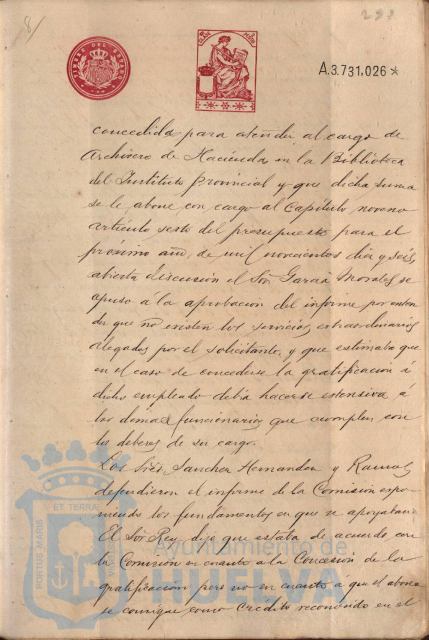 8/
293
TIMBRE DEL ESTADO
A.3.731.026*
concedida para atender al cargo de
Archivero de Hacienda en la Biblioteca
del Instituto Provincial y que dicha suma
se le abone con cargo al Capítulo noveno
artículo sesto del presupuesto para el
próximo año, de mil novecientos diez y seis,
abierta discusión el Sor. García Morales, se
opuso a la aprobación del informe por enten
der que no existen los servicios extraordinarios
alegados por el solicitante, y que estimaba que
en el caso de concederse la gratificación á
dicho empleado debía hacerse extensiva á
los demás funcionarios que cumplen con
los deberes de su cargo.
Los Sres. Sanchez Hernandez y Ramos
defendieron el informe de la Comisión expo
niendo los fundamentos en que se apoyaban.
El Sor. Rey, dijo que estaba de acuerdo con
la Comisión en cuanto a la Concesión de la
gratificación pero no en cuanto á que el abono
se consigne como Crédito reconocido en el
PORTUS MARIS ET TERRAE
Ayuntamiento de
HUELVA